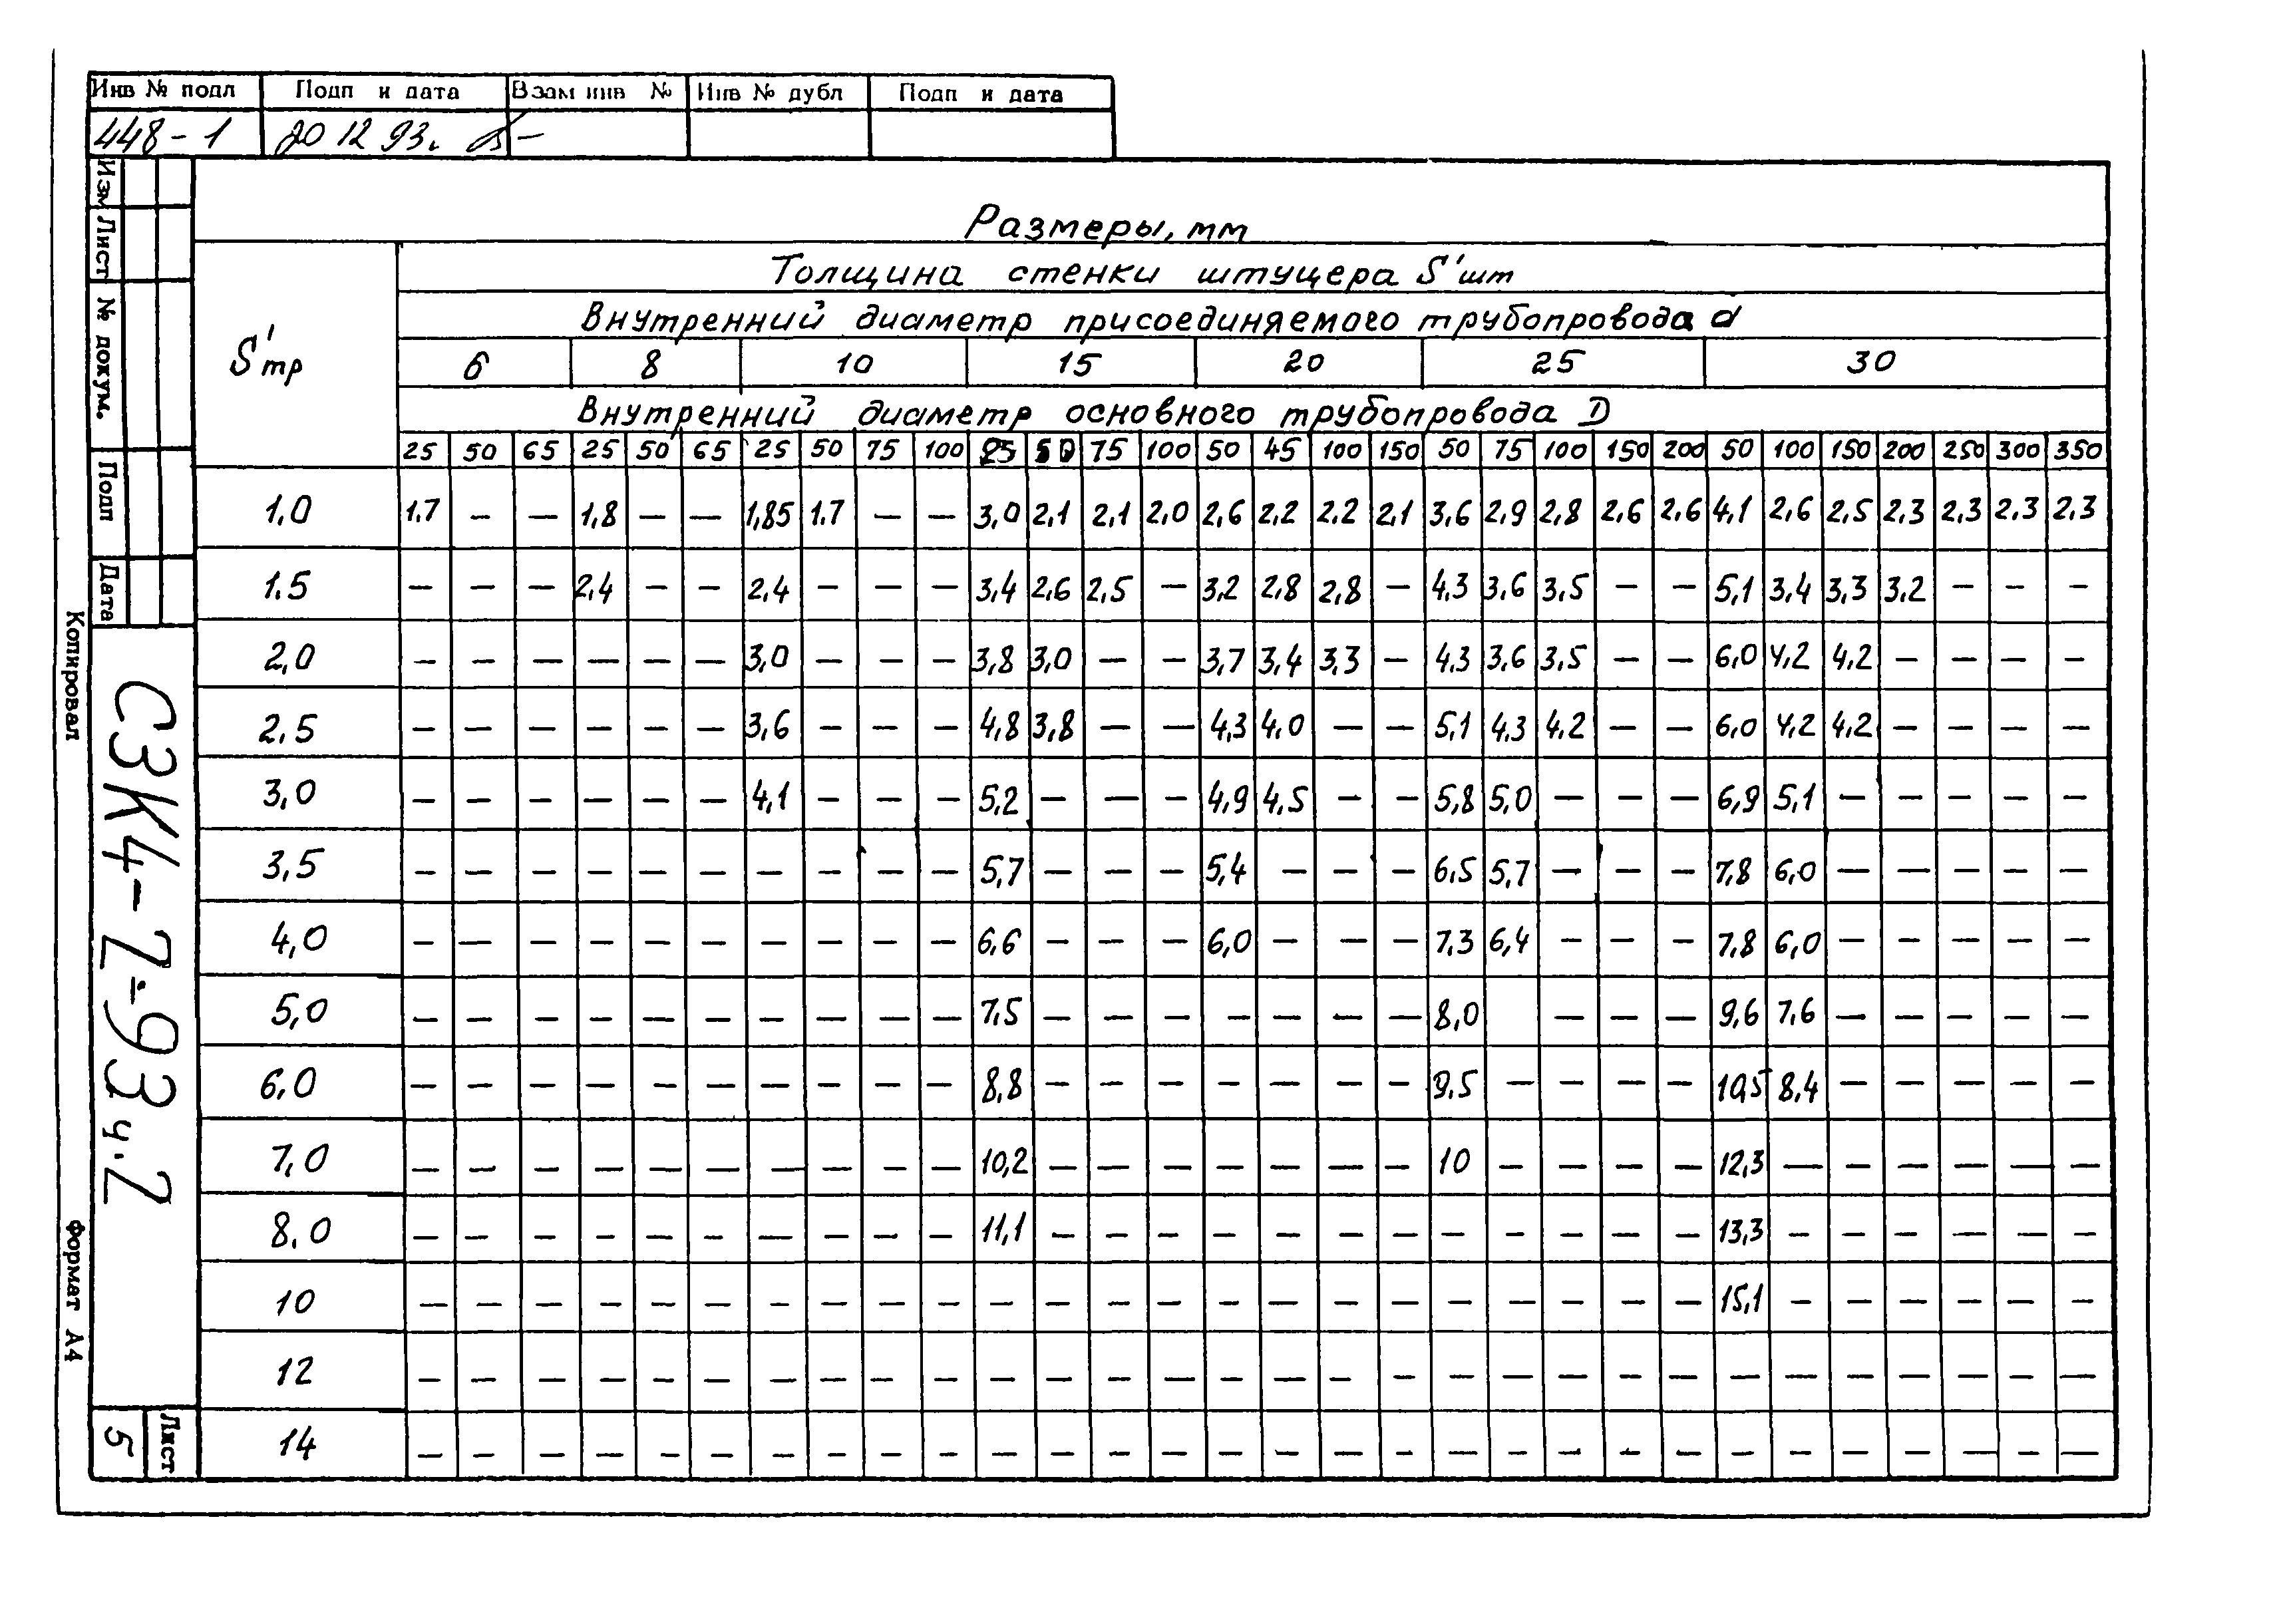 Инв № подл Подп и дата Взам инв № Инв № дубл Подп и дата
448-1 20 12 93.
Размеры, мм
Толщина стенки штуцера S'шт
S'тр Внутренний диаметр присоединяемого трубопровода d
6 8 10 15 20 25 30
Внутренний диаметр основного трубопровода D
25 50 65 25 50 65 25 50 75 100 25 50 75 100 50 45 100 150 50 75 100 150 200 50 100 150 200 250 300 350
1.0 1.7 — — 1,8 — — 1,85 1.7 — — 3,0 2,1 2,1 2,0 2,6 2,2 2,2 2,1 3,6 2,9 2,8 2,6 2,6 4,1 2,6 2,5 2,3 2,3 2,3 2,3
1.5 — — — 2,4 — — 2,4 — — — 3,4 2,6 2,5 — 3,2 2,8 2,8 — 4,3 3,6 3,5 — — 5,1 3,4 3,3 3,2 — — —
2,0 — — — — — — 3,0 — — — 3,8 3,0 — — 3,7 3,4 3,3 — 4,3 3,6 3,5 — — 6,0 4,2 4,2 — — — —
2,5 — — — — — — 3,6 — — — 4,8 3,8 — — 4,3 4,0 — — 5,1 4,3 4,2 — — 6,0 4,2 4,2 — — — —
3,0 — — — — — — 4,1 — — — 5,2 — — — 4,9 4,5 — — 5,8 5,0 — — — 6,9 5,1 — — — — —
3,5 — — — — — — — — — — 5,7 — — — 5,4 — — — 6,5 5,7 — — — 7,8 6,0 — — — — —
4,0 — — — — — — — — — — 6,6 — — — 6,0 — — — 7,3 6,4 — — — 7,8 6,0 — — — — —
5,0 — — — — — — — — — — 7,5 — — — — — — — 8,0 — — — 9,6 7,6 — — — — —
6,0 — — — — — — — — — — 8,8 — — — — — — — 9,5 — — — — 10,5 8,4 — — — — —
7,0 — — — — — — — — — — 10,2 — — — — — — — 10 — — — — 12,3 — — — — — —
8,0 — — — — — — — — — — 11,1 — — — — — — — — — — — — 13,3 — — — — — —
10 — — — — — — — — — — — — — — — — — — — — — — — 15,1 — — — — — —
12 — — — — — — — — — — — — — — — — — — — — — — — — — — — — — —
14 — — — — — — — — — — — — — — — — — — — — — — — — — — — — — —
Изм Лист № докум. Подп Дата
СЗК4-7-93 ч.2
Лист
5
Копировал
Формат А4